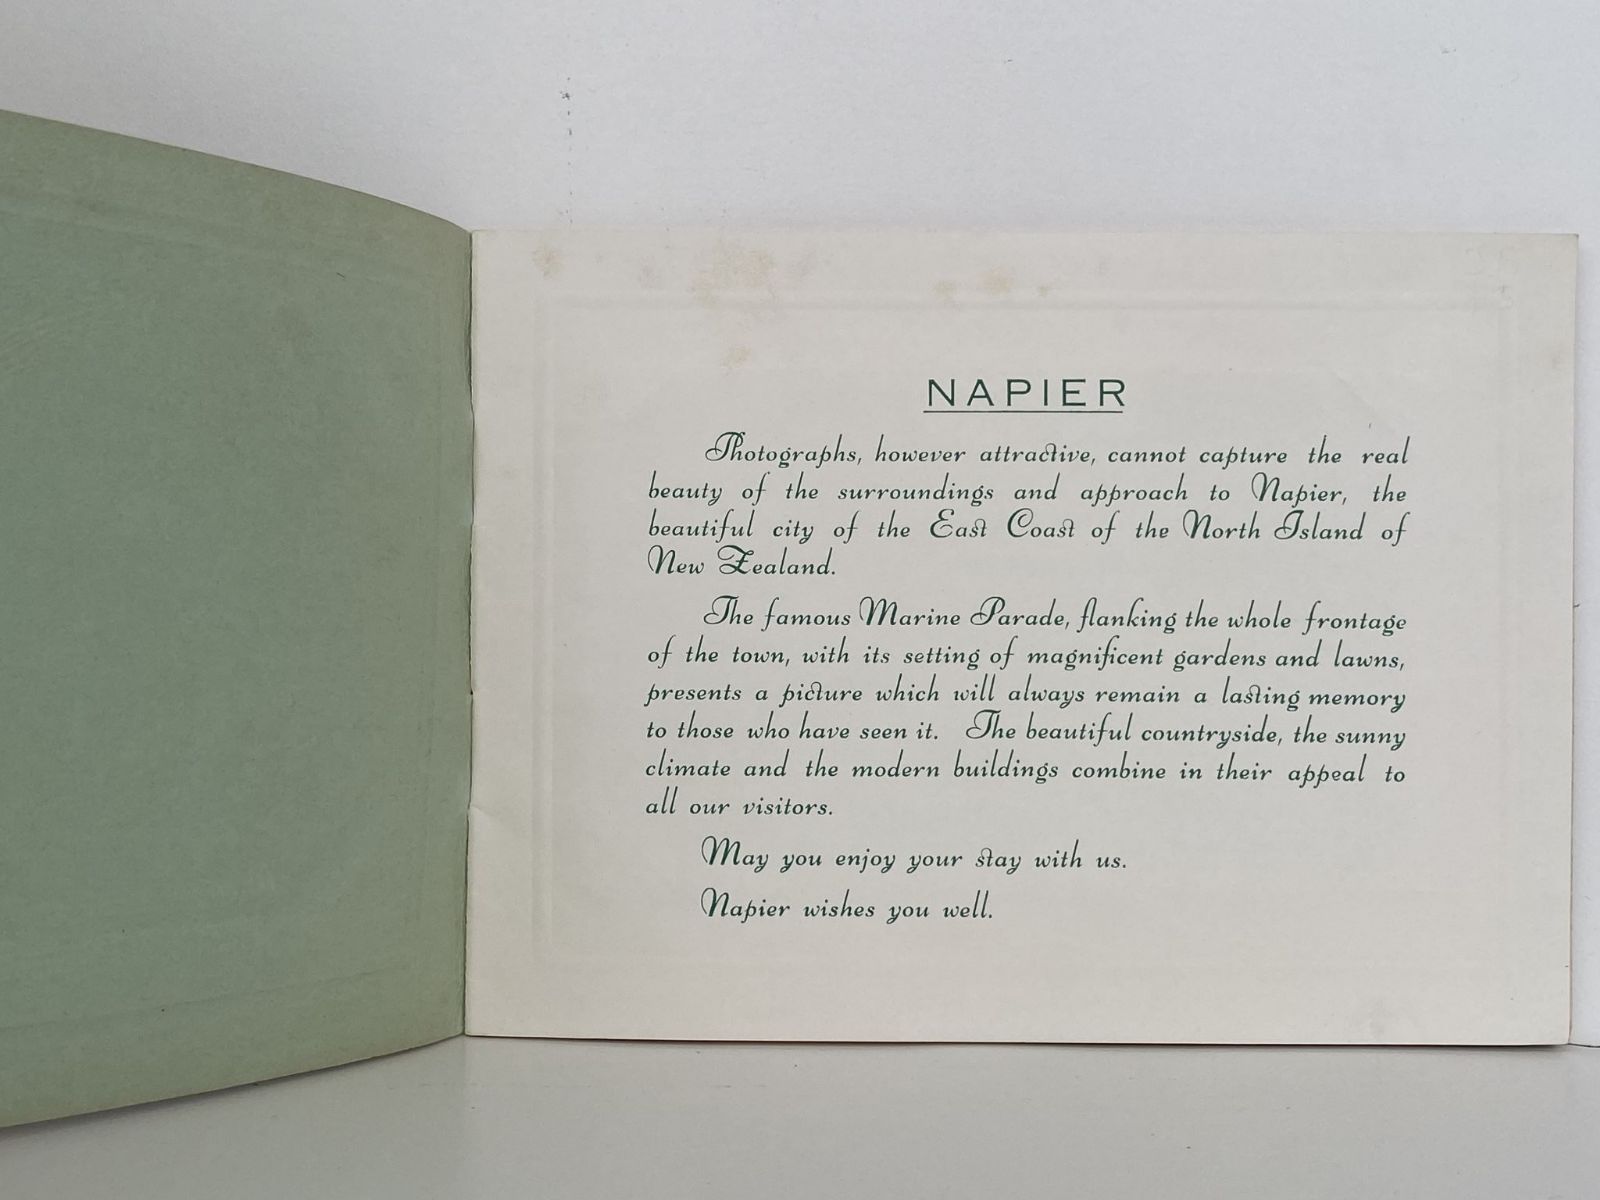 NAPIER
Photographs, however attractive, cannot capture the real
beauty of the surroundings and approach to Napier, the
beautiful city of the East Coast of the North Island of
New Zealand.
The famous Marine Parade, flanking the whole frontage
of the town, with its setting of magnificent gardens and lawns,
presents a picture which will always remain a lasting memory
to those who have seen it. The beautiful countryside, the sunny
climate and the modern buildings combine in their appeal to
all our visitors.
May you enjoy your stay with us.
Napier wishes you well.